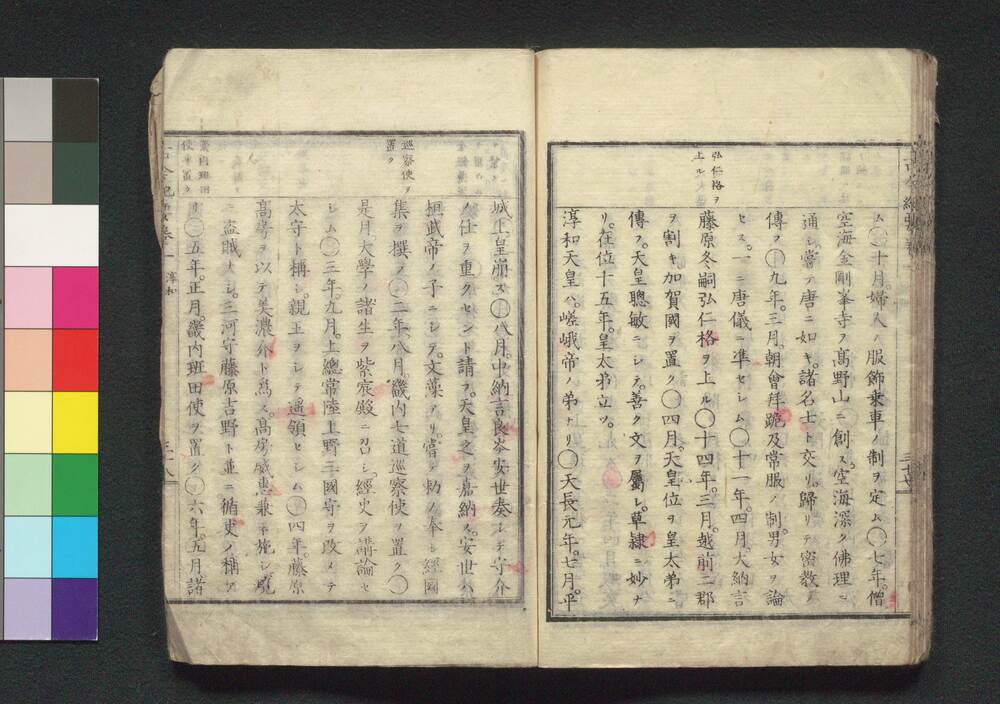 弘仁格ヲ
上ル
ム◯十月。婦人ノ服飾乗車ノ制ヲ定ム◯七年。僧
空海金剛峯寺ヲ髙野山ニ創ス。空海深ク佛理ニ
通シ嘗テ唐ニ如キ。諸名士ト交リ。歸リテ密教ヲ
傳フ◯九年。三月。朝會拜跪及常服ノ制。男女ヲ論
セス。一ニ唐儀ニ準セシム◯十一年。四月。大納言
藤原冬嗣弘仁格ヲ上ル◯十四年。三月。越前二郡
ヲ割キ加賀國ヲ置ク◯四月。天皇位ヲ皇太弟ニ
傳フ。天皇聰敏ニシテ。善ク文ヲ屬シ。草隷ニ妙ナ
リ。在位十五年。皇太弟立ツ。
淳和天皇ハ。嵯峨帝ノ弟ナリ◯天長元年。七月。平
巡察使ヲ
置ク
城上皇崩ス◯八月。中納言良岑安世奏シテ守介
ノ仕ヲ重クセント請フ。天皇之ヲ嘉納ス。安世ハ
桓武帝ノ子ニシテ。文藻アリ。嘗テ勅ヲ奉シ經國
集ヲ撰フ◯二年。八月。畿内七道巡察使ヲ置ク◯
是月大學ノ諸生ヲ紫宸殿ニ召シ。經史ヲ講論セ
シム◯三年。九月。上總常陸上野三國守ヲ改メテ
太守ト稱シ。親王ヲシテ遥領セシム◯四年。藤原
髙房ヲ以テ美濃介ト爲ス。髙房威惠兼子施シ。境
ニ盗賊ナシ。三河守藤原吉野ト並ニ循吏ノ稱ア
リ◯五年。正月。畿内班田使ヲ置ク◯六年。九月諸
淳和